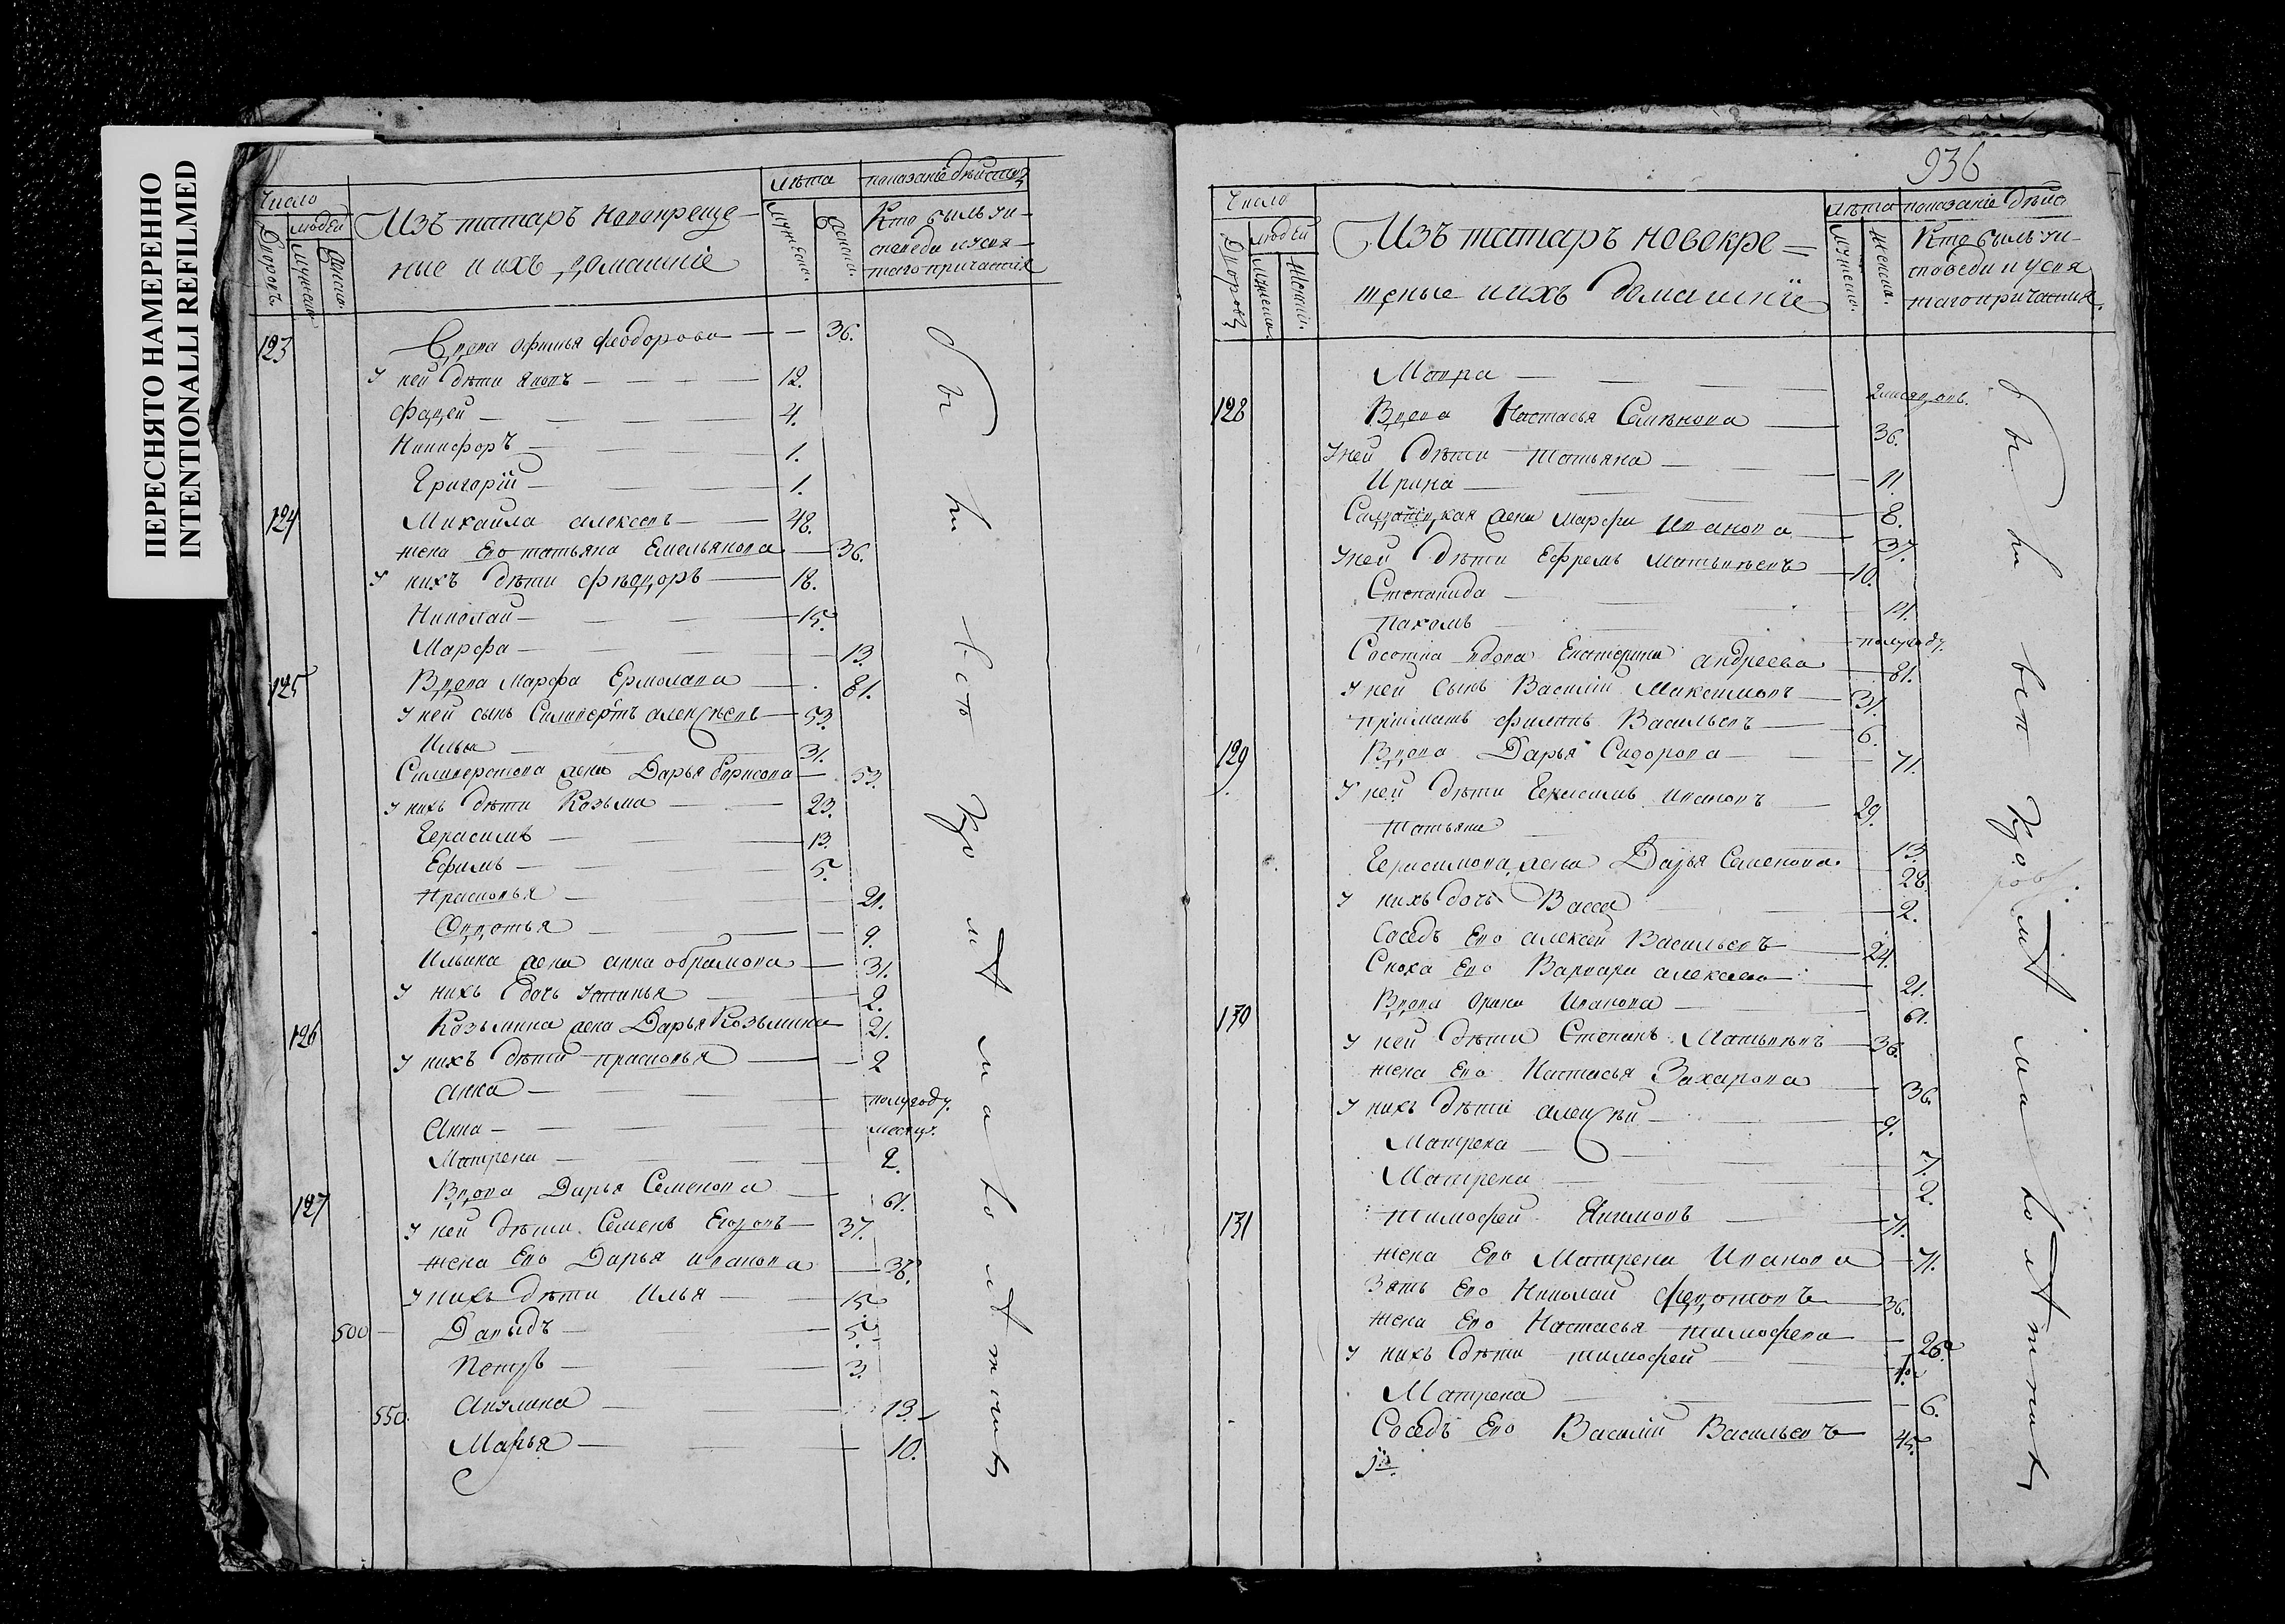 ПЕРЕСНЯТО НАМЕРЕННО
INTENTIONALLI REFILMED
Число
людей
Дворовъ
мужеска
женска
Изъ татаръ новокреще-
ные и ихъ домашнiе
лѣта
мужеска
женска
показанiе дѣйств
Кто былъ у и-
споведи и у свя-
таго причастия
123 Вдова офимья феодорова 36.
У ней дѣти яковъ 12.
фадей 4.
Никифоръ 1.
Григорiй 1.
124 Михаила алексевъ 48.
жена Ево татьяна Емельянова 36.
У нихъ дѣти фѣдоръ 18.
Николай 15.
Марфа 13.
125 Вдова Марфа Ермолава 81.
У ней сынъ Силиверстъ алексѣевъ 53.
Илья 31.
Силиверстова жена Дарья борисова 53.
У нихъ дѣти Козьма 23.
Герасимъ 13.
Ефимъ 5.
Прасковья 21.
Овдотья 9.
Ильина жена анна обрамова 31.
У нихъ дочь Устинья 2.
126 Козьмина жена Дарья Козьмина 21.
У нихъ дѣти прасковья 2
анна полугоду.
Анна месяцъ.
Матрена 2.
127 Вдова Дарья Семенова 61.
У ней дѣти Семенъ Егоровъ 37.
жена Ево Дарья иванова 36.
У нихъ дѣти Илья 15
500 Давыдъ 5.
Петръ 3.
550. Акулина 13.
Марья 10.
936
Число
людей
Дворовъ
мужеска
женска
Изъ татаръ новокре=
щеные и ихъ домашнiе
лѣта
мужеска
женска
показанiе дѣйс
Кто былъ у и-
споведи и у свя
таго причастия
Мавра 2 месяцовъ.
128 Вдова Настасья Семѣнова 36.
У ней дѣти татьяна 11.
Ирина 8.
Салдатская жена марфа Иванова 37.
У ней дѣти Ефремъ Матьвѣевъ 10.
Степанида 14.
пахомъ полугоду.
вдова Екатерина андреева 81.
У ней сынъ Василiй Максимовъ 31.
прiиматъ Василъевъ 6.
129 Вдова Дарья Сидорова 71.
У ней дѣти Герасимъ ивановъ 29.
татьяна 13.
Герасимова жена Дарья Семенова 28.
У нихъ дочь Васса 2.
Соседъ Ево алексей Васильевъ 24.
Сноха Ево Варвара алексева 21.
130 Вдова Орина Иванова 61.
У ней дѣти Степанъ Матьвѣевъ 36.
жена Ево Настасья Захарова 36.
У нихъ дѣти алексѣй 9.
Матрена 7.
Матрена 2.
131 тимофей Якимовъ 71.
жена Ево Матрена Иванова 71.
Зять Ево Николай федотовъ 36.
жена Ево Настасья тимофева 26.
У нихъ дѣти тимофей
Матрена 6.
Соседъ Ево Василiй Васильевъ 45.